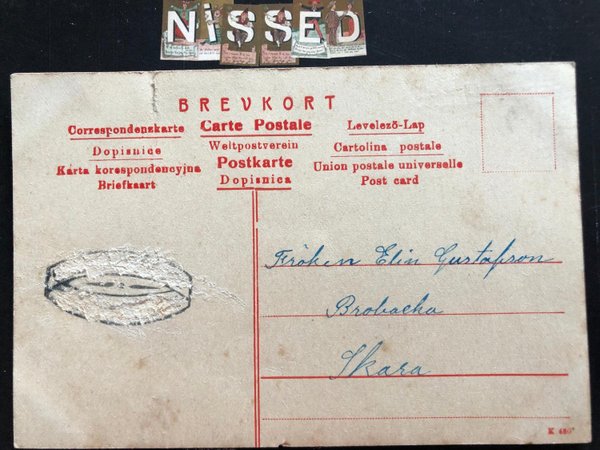 NiSSED
BREVKORT
Correspondenzkarte Carte Postale Levelező-Lap
Dopisnice Weltpostverein Cartolina postale
Karta korespondencyjna Postkarte Union postale universelle
Briefkaart Dopisnica Post card
Fröken Elin Gustafson
Brobacka
Skara
K. 480